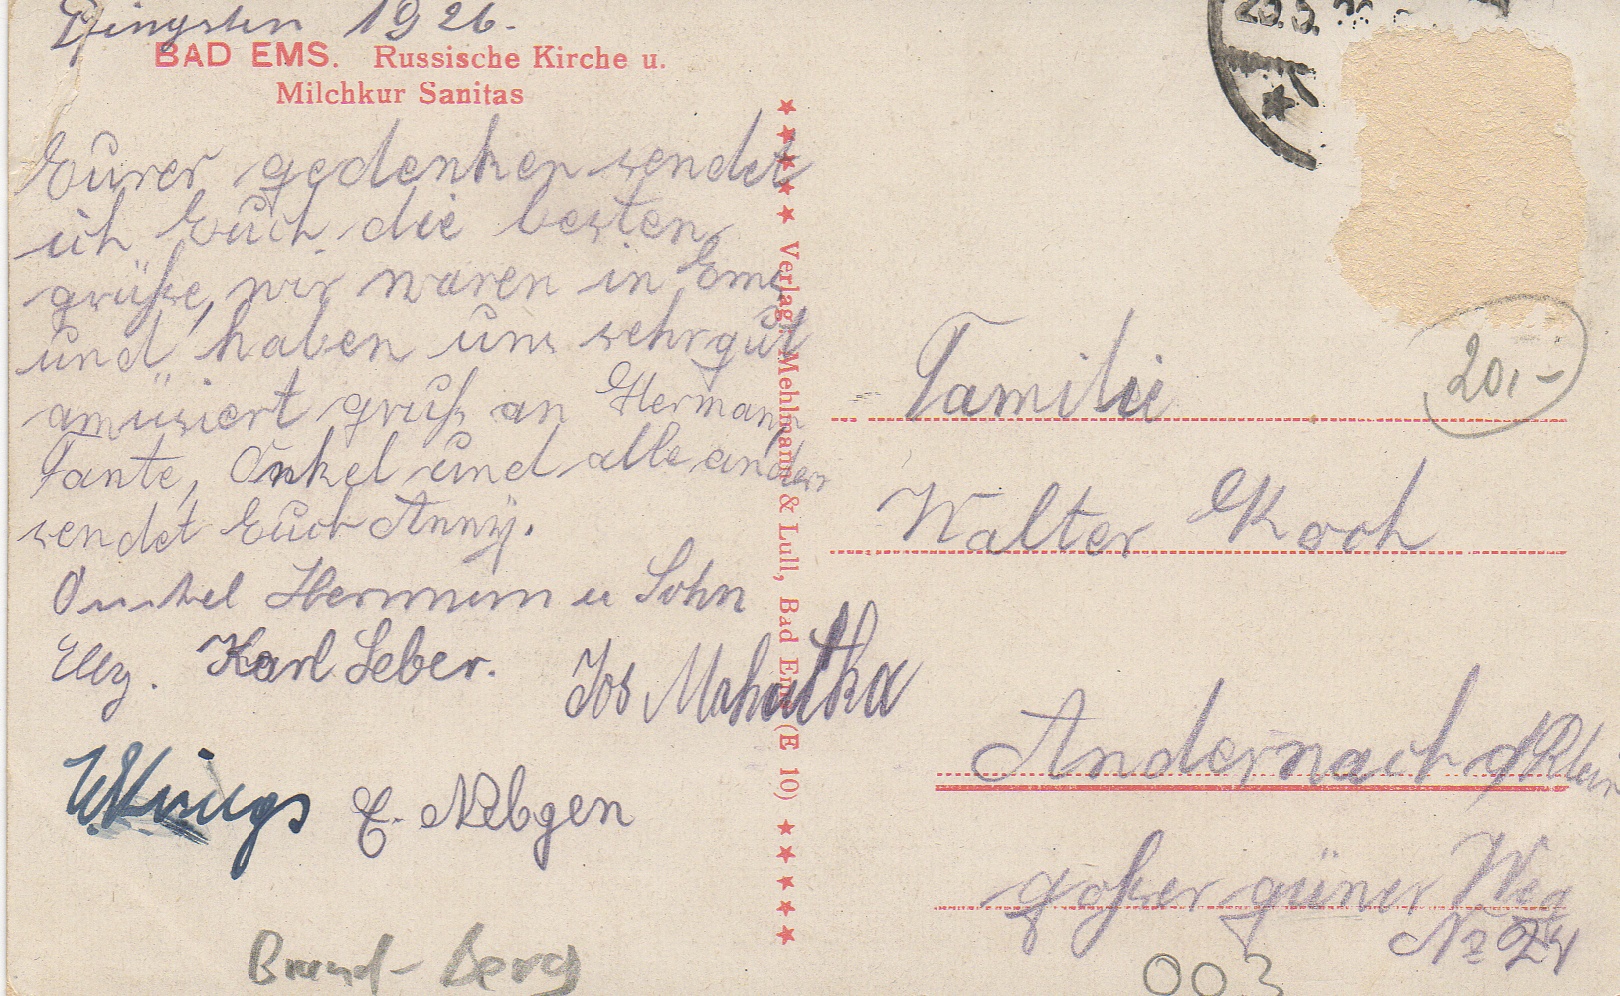 Pfingsten 1926.
BAD EMS. Russische Kirche u.
Milchkur Sanitas
Eurer gedenken sendet
ich Euch die besten
grüße, wir waren in Ems
und haben uns sehr gut
amüsiert gruß an Hermann
Tante, Onkel und alle andern
sendet Euch Anny.
Onkel Hermann u Sohn
Karl Leber.
Jos
E. Nebgen
Verlag: Mehlmann & Lull, Bad Ems (E 10)
20,-
Familie
Walter Koch
Andernach a/Rhein
goßer güner Weg
Nr 24
003